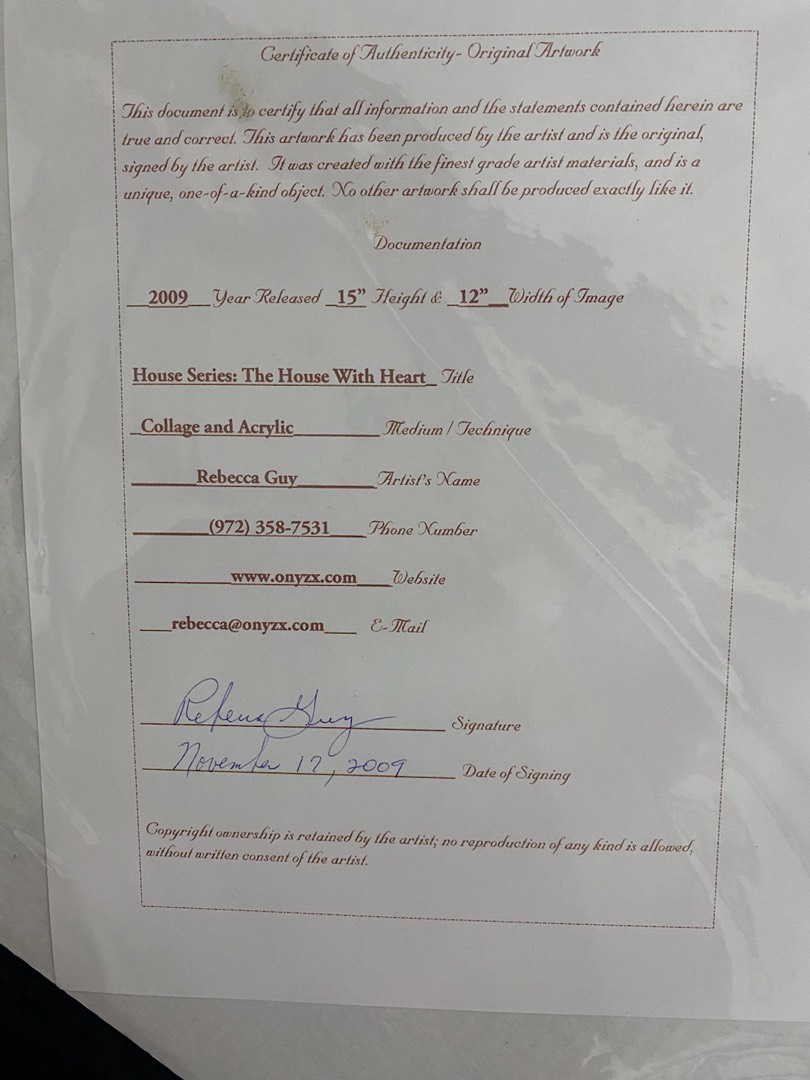 Certificate of Authenticity- Original Artwork
This document is to certify that all information and the statements contained herein are
true and correct. This artwork has been produced by the artist and is the original,
signed by the artist. It was created with the finest grade artist materials, and is a
unique, one-of-a-kind object. No other artwork shall be produced exactly like it.
Documentation
2009 Year Released 15” Height & 12” Width of Image
House Series: The House With Heart Title
Collage and Acrylic Medium / Technique
Rebecca Guy Artist's Name
(972) 358-7531 Phone Number
www.onyzx.com Website
rebecca@onyzx.com E-Mail
Rebecca Guy Signature
November 17, 2009 Date of Signing
Copyright ownership is retained by the artist; no reproduction of any kind is allowed,
without written consent of the artist.